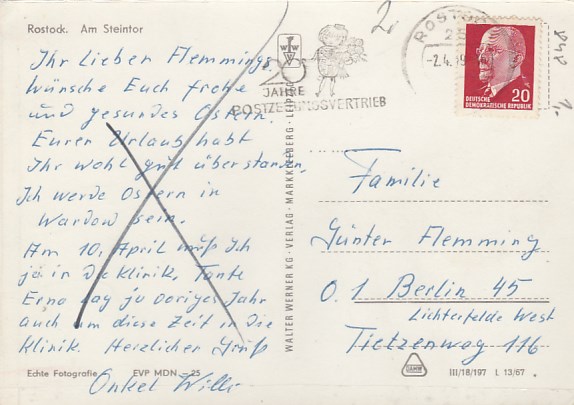 Rostock. Am Steintor
Ihr Lieber Flemmings
wünsche Euch frohe
und gesundes Ostern.
Euren Urlaub habt
Ihr wohl gut überstanden,
Ich werde Ostern in
Wardow sein.
Am 10. April muß Ich
ja in die Klinik, Tante
Erna lag ja voriges Jahr
auch um diese Zeit in die
Klinik. Herzlicher Gruß
Onkel Willi
Echte Fotografie EVP MDN -,25
WALTER WERNER KG · VERLAG · MARKKLEEBERG · LEIPZIG
20
JAHRE
POSTZEITUNGSVERTRIEB
ROSTOCK
-2.4.
DEUTSCHE
DEMOKRATISCHE REPUBLIK
20
Familie
Günter Flemming
0.1 Berlin 45
Lichterfelde West
Tietzenweg 116
III/18/197 L 13/67